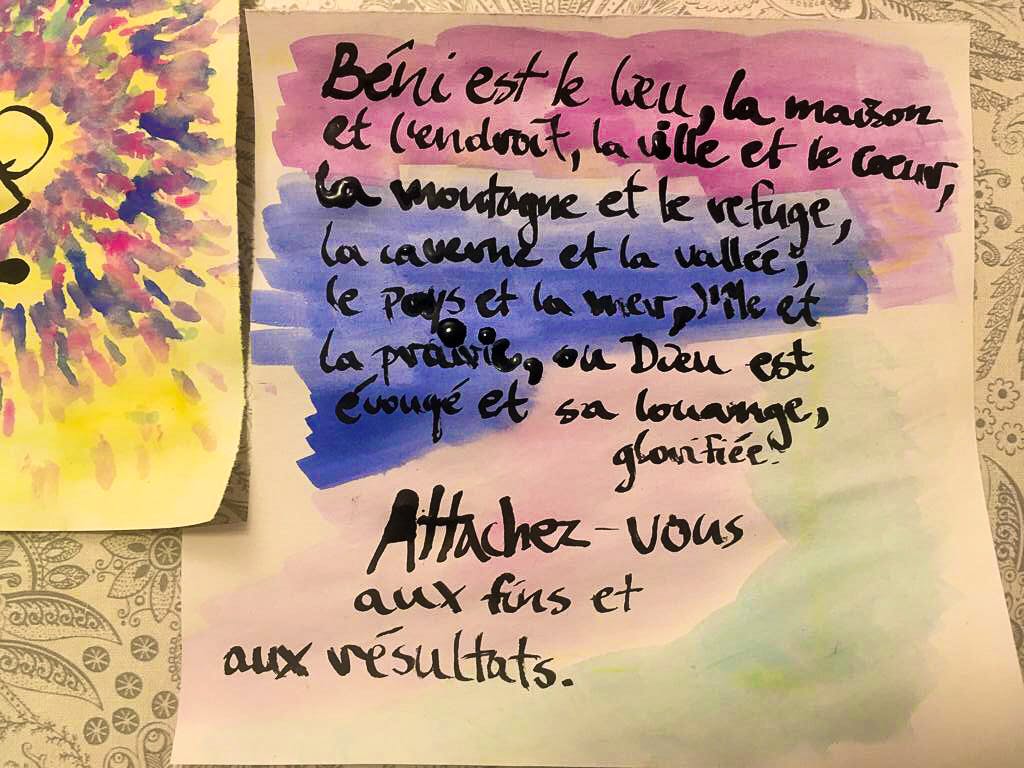 Béni est le lieu, la maison
et l'endroit, la ville et le coeur,
la montagne et le refuge,
la caverne et la vallée,
le pays et la mer, l'île et
la prairie, ou Dieu est
évouqé et sa louange,
glorifiée.
Attachez-vous
aux fins et
aux résultats.